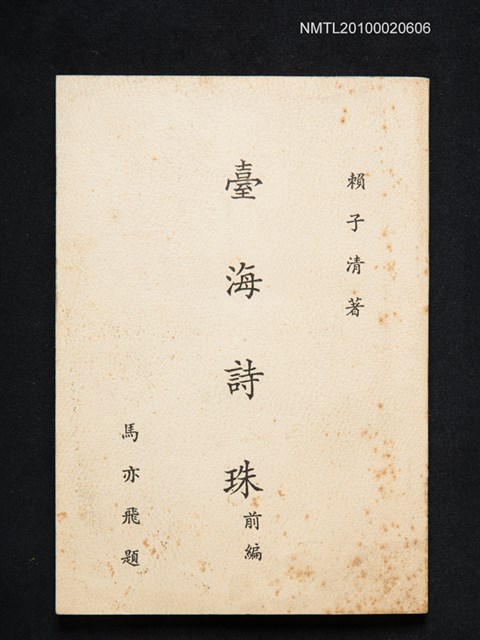 NMTL20100020606
賴子清著
臺海詩珠
前編
馬亦飛題